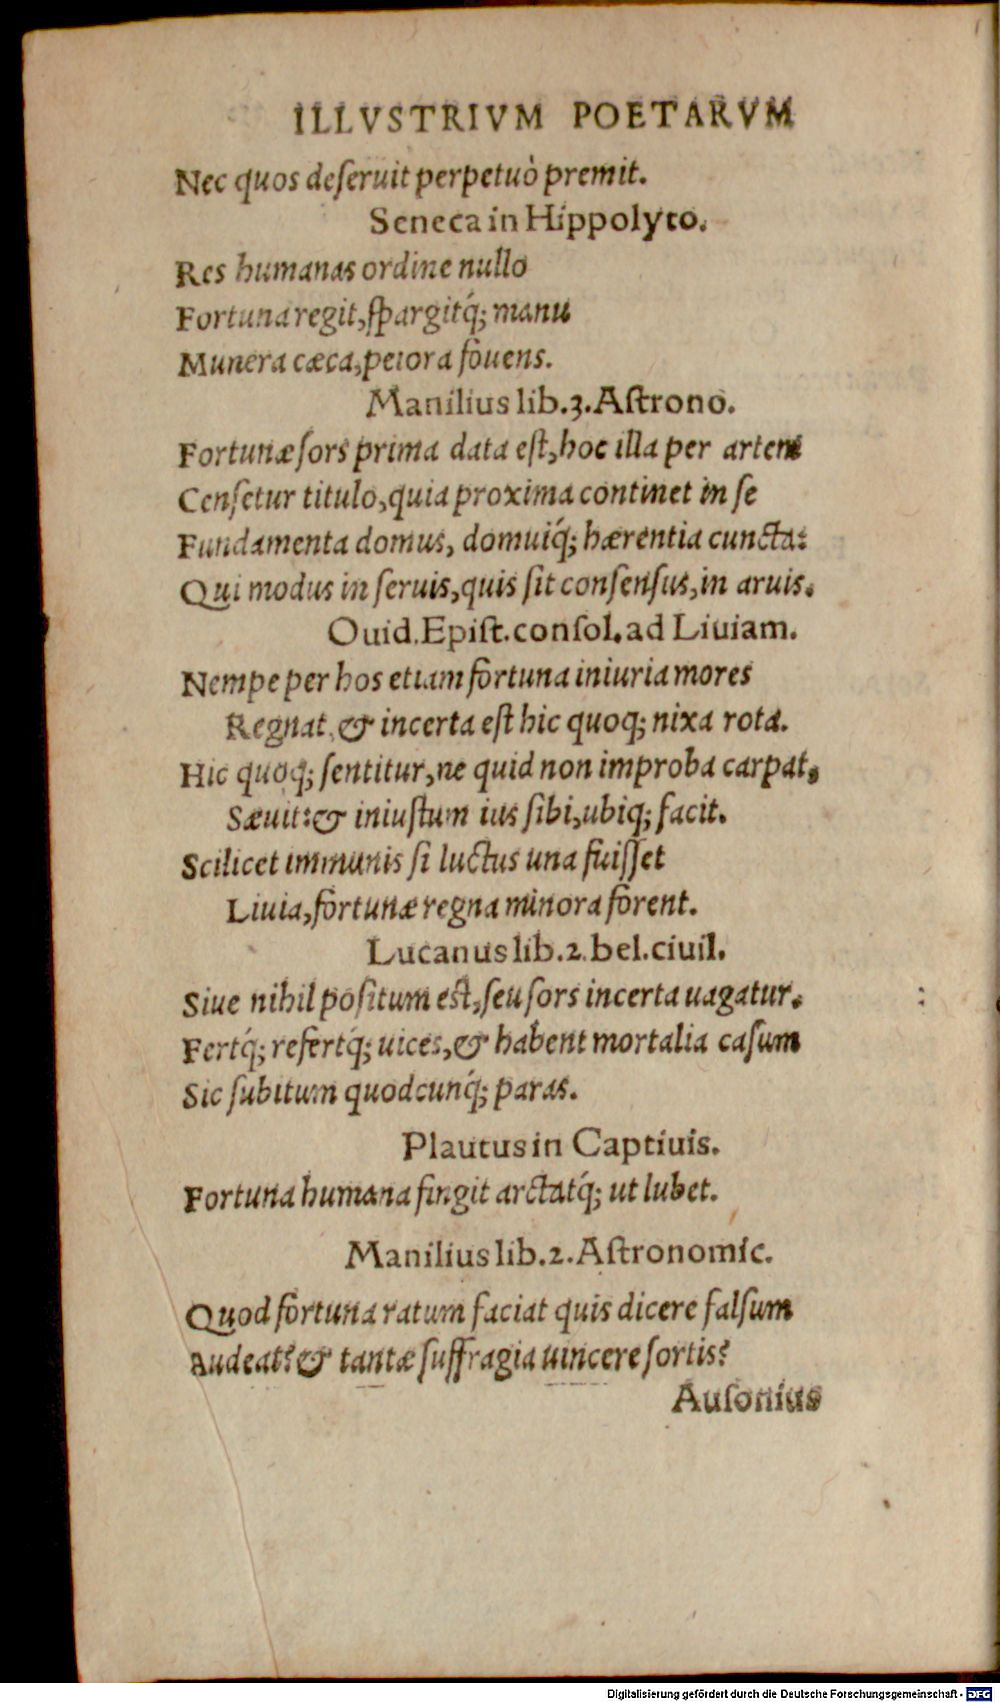 ILLVSTRIVM POETARVM
Nec quos deſeruit perpetuò premit.
Seneca in Hippolyto.
Res humanas ordine nullo
Fortuna regit, ſpargitq́; manu
Munera cæca, peiora fouens.
Manilius lib.3. Aſtrono.
Fortunæ ſors prima data eſt, hoc illa per artem
Cenſetur titulo, quia proxima continet in ſe
Fundamenta domus, domuiq́; hærentia cuncta:
Qui modus in ſeruis, quis ſit conſenſus, in aruis.
Ouid. Epiſt. conſol. ad Liuiam.
Nempe per hos etiam fortuna iniuria mores
Regnat, & incerta eſt hic quoq; nixa rota.
Hic quoq; ſentitur, ne quid non improba carpat,
Sæuit: & iniuſtum ius ſibi, ubiq; facit.
Scilicet immunis ſi luctus una fuiſſet
Liuia, fortunæ regna minora forent.
Lucanus lib.2. bel. ciuil.
Siue nihil poſitum eſt, ſeu ſors incerta uagatur.
Fertq́; refertq́; uices, & habent mortalia caſum
Sic ſubitum quodcunq́; paras.
Plautus in Captiuis.
Fortuna humana fingit arctatq́; ut lubet.
Manilius lib.2. Aſtronomic.
Quod fortuna ratum faciat quis dicere falſum
Audeat? & tantæ ſuffragia uincere ſortis?
Auſonius
Digitalisierung gefördert durch die Deutsche Forschungsgemeinschaft - DFG